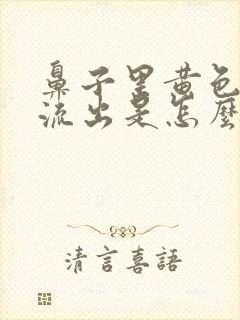 鼻子里黃色
流出是怎麼
清言喜語